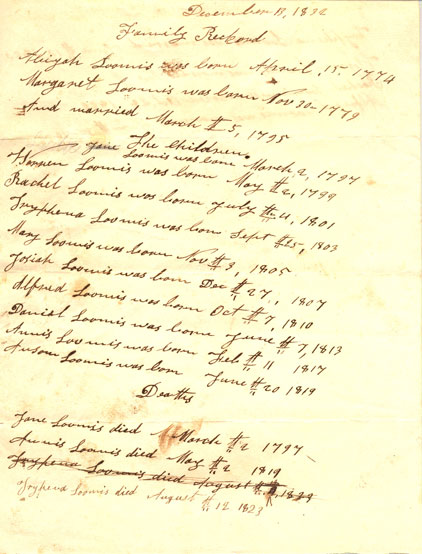 December 18, 1832
Family Reckord
Abijah Loomis was born April 15. 1774
Margaret Loomis was born Nov 30 - 1779
And married March # 5, 1795
The Children.
Jane Loomis was born March 2, 1797
Loomis was born May # 2, 1799
Rachel Loomis was born July # 4, 1801
Tryphena Loomis was born Sept # 25, 1803
Mary Loomis was born Nov # 3, 1805
Josiah Loomis was born Dec # 27, 1807
Alfred Loomis was born Oct # 7, 1810
Daniel Loomis was born June # 7, 1813
Annis Loomis was born Feb # 11 1817
Anson Loomis was born June # 20 1819
Deaths
Jane Loomis died March # 2 1797
Annis Loomis died May # 2 1819
Trypena Loomis died August # 1829
Trypena Loomis died August # 12 1823